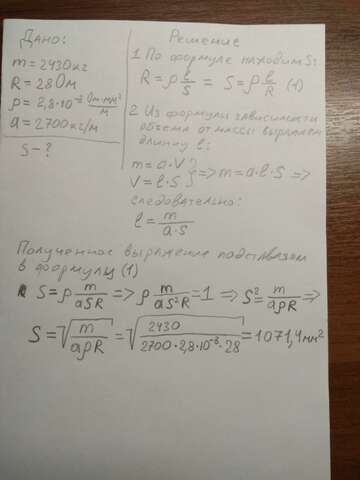 Дано:
m = 2430кг
R = 28Ом
ρ = 2,8·10⁻⁸ Ом·мм²/м
a = 2700кг/м
S - ?
Решение
1 По формуле находим S:
R = ρ l/S = S = ρ l/R (1)
2 Из формулы зависимости
объема от массы выражаем
длинну l:
m = a·V
V = l·S } => m = a·l·S =>
следовательно:
l = m/a·S
Полученное выражение подставляем
в формулу (1)
S = ρ m/aSR => ρ m/aS²R = 1 => S² = m/aρR =>
S = √m/aρR = √2430/2700·2,8·10⁻⁸·28 = 1071,4мм²